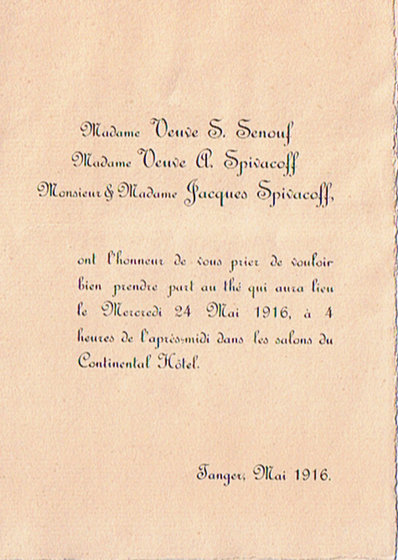 Madame Veuve S. Senouf
Madame Veuve A. Spivacoff
Monsieur & Madame Jacques Spivacoff,
ont l'honneur de vous prier de vouloir
bien prendre part au thé qui aura lieu
le Mercredi 24 Mai 1916, à 4
heures de l'après-midi dans les salons du
Continental Hôtel.
Tanger, Mai 1916.